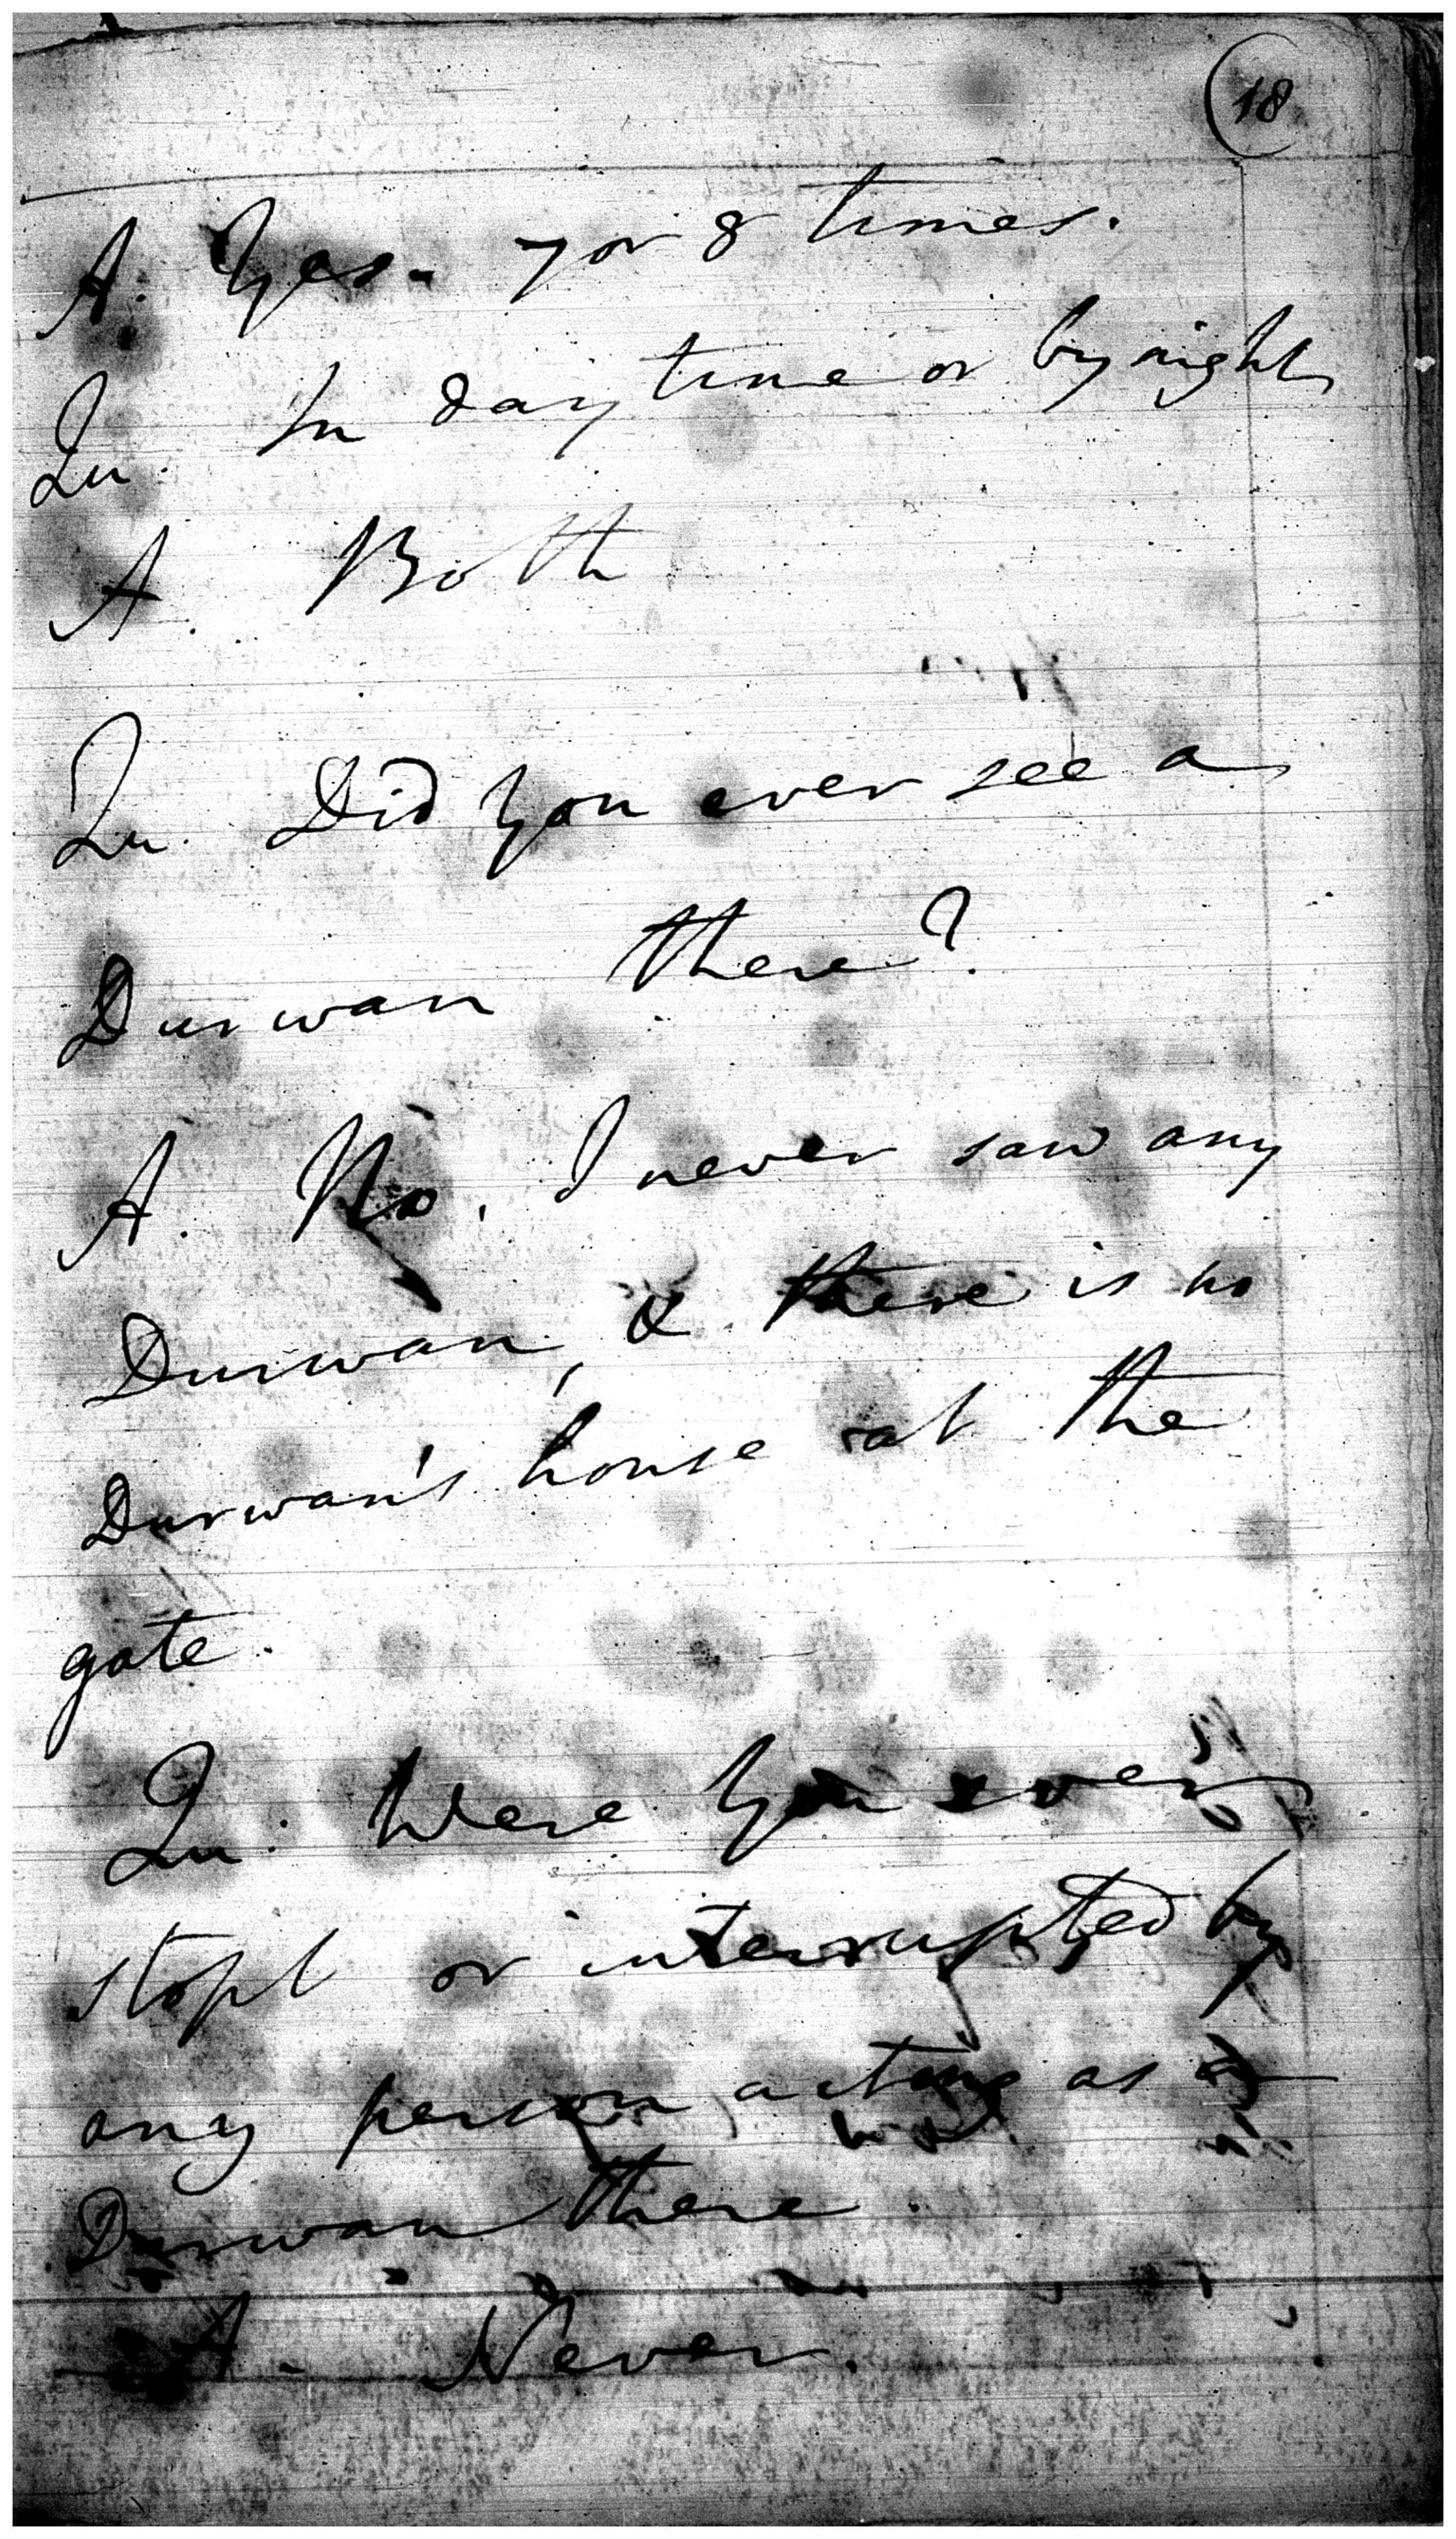 18
A. Yes - 7 or 8 times.
Qu. In day time or by night
A. Both
Qu. Did you ever see a
Durwan there?
A. No, I never saw any
Durwan, & there is no
Durwan's house at the
gate.
Qu. Were you ever
stopt or interrupted by
any person acting as a
Durwan there.
A. Never.